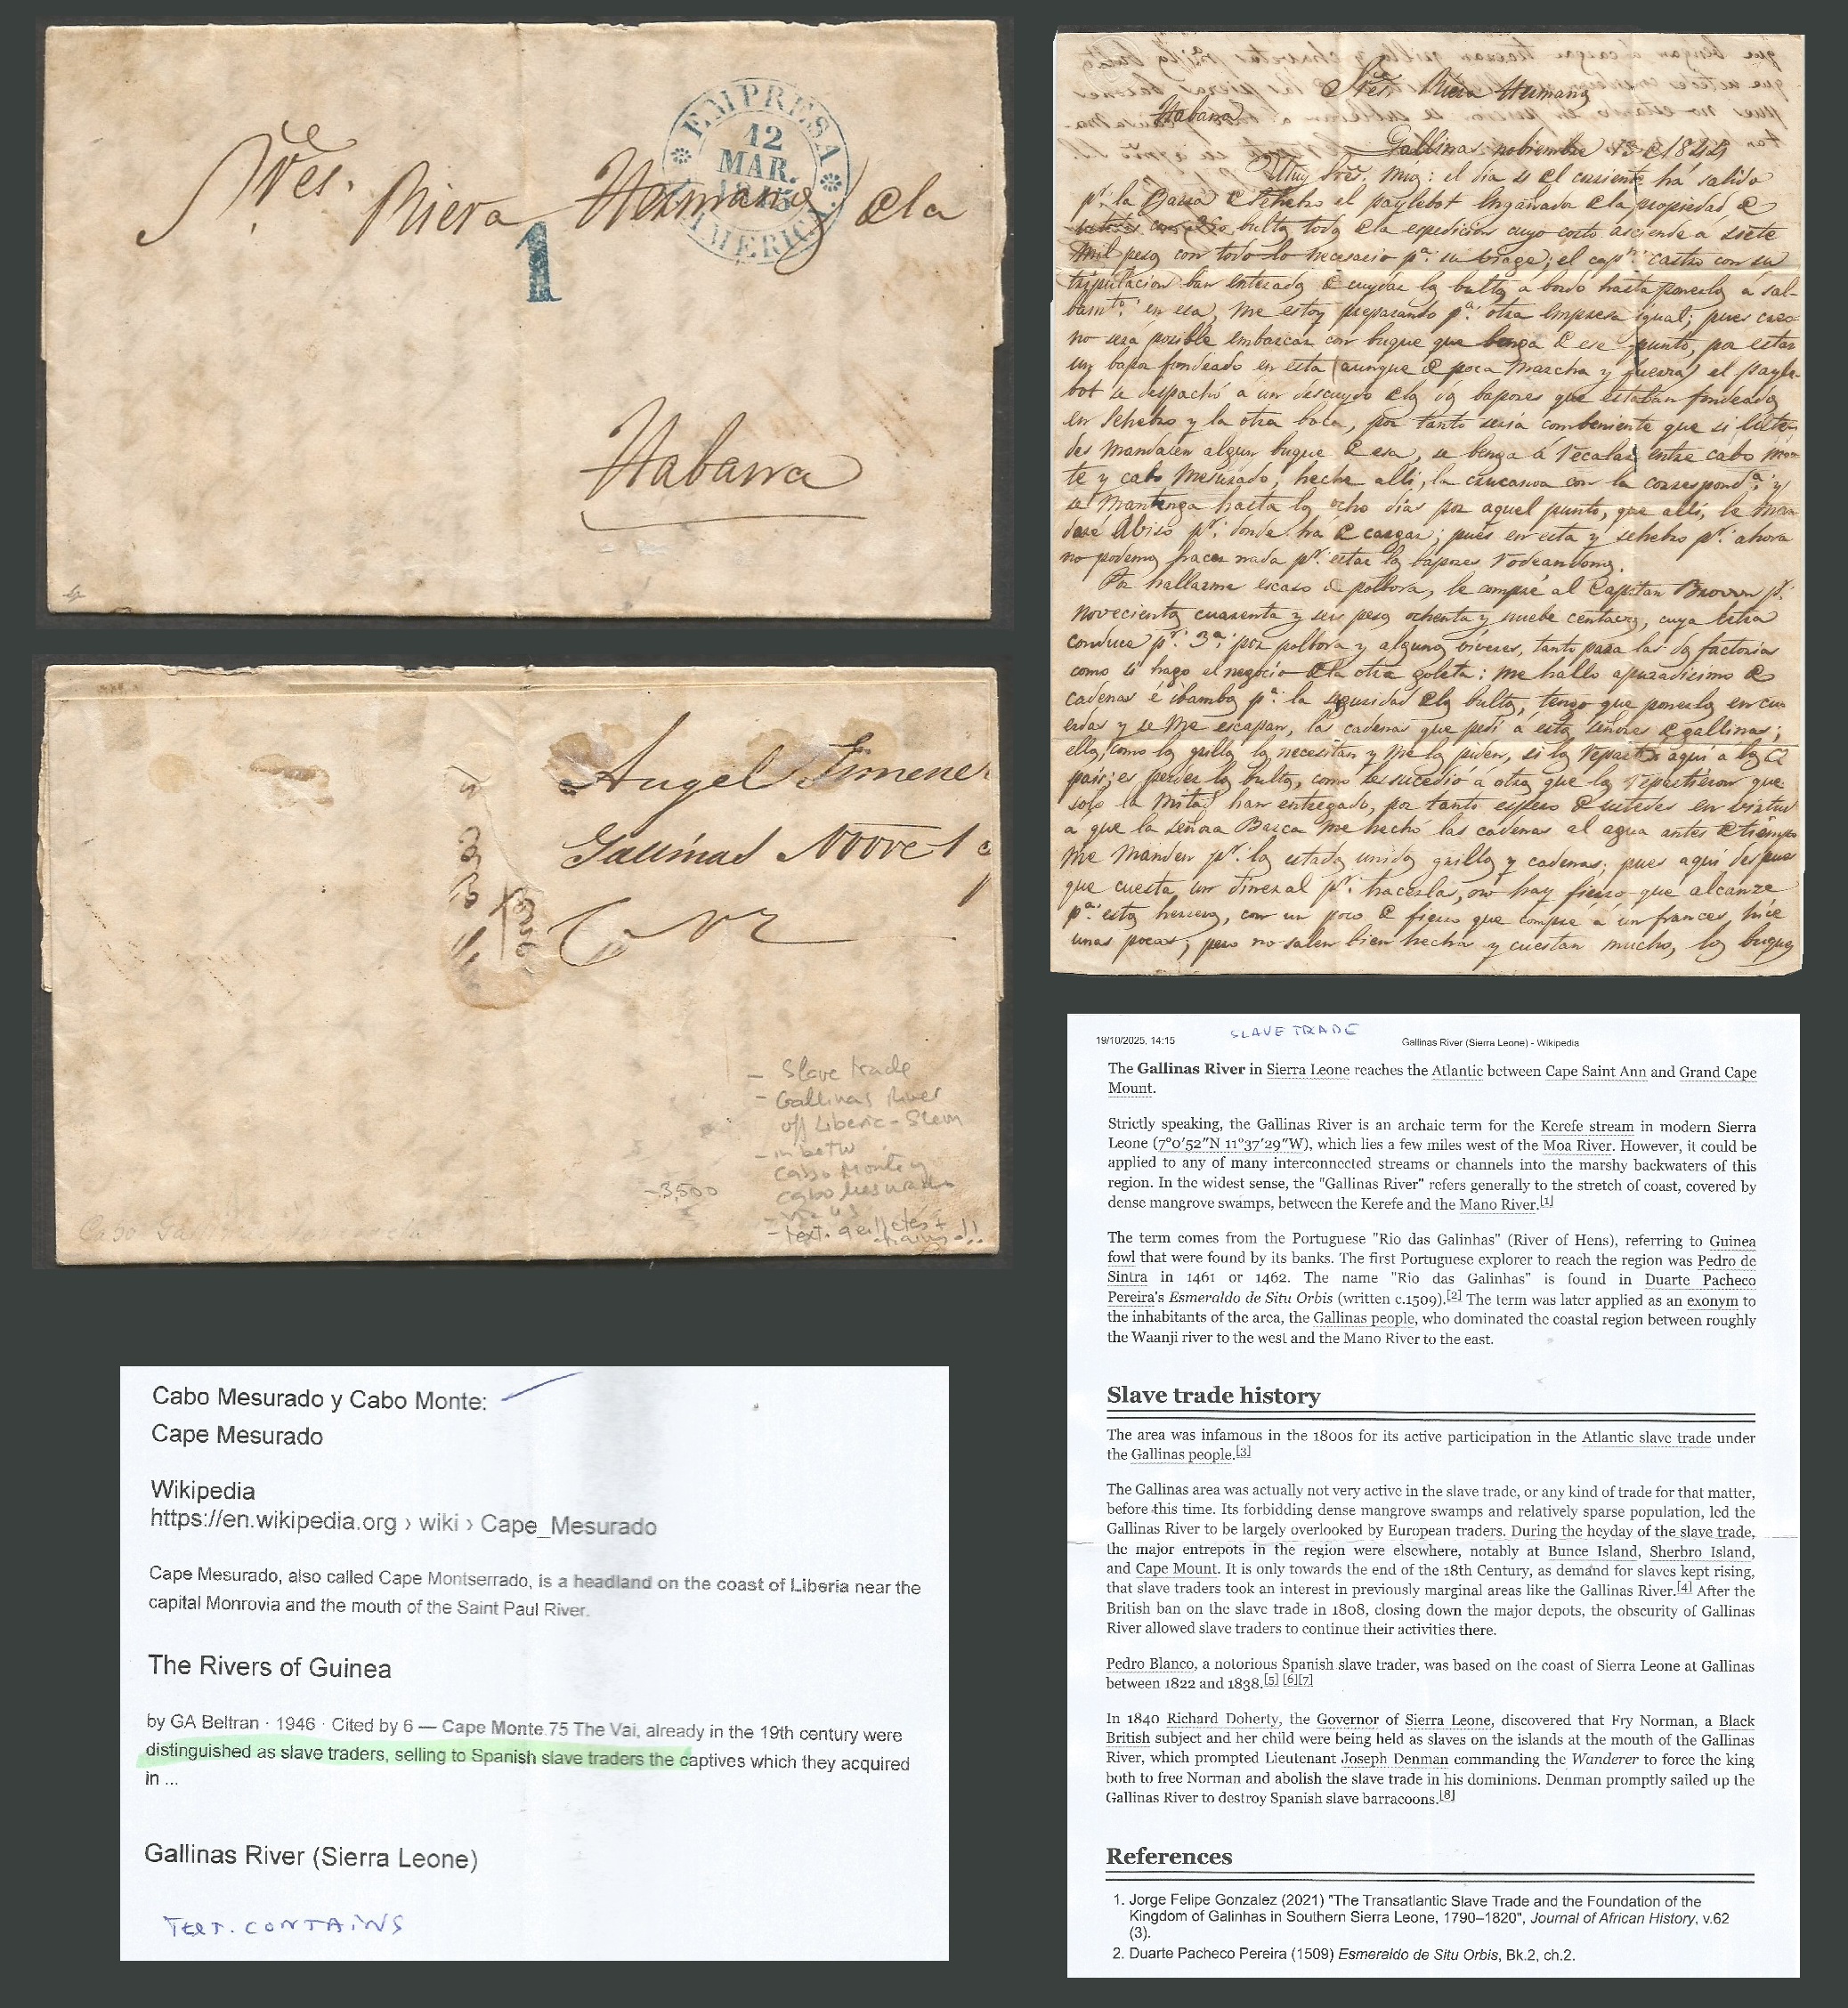 Sres. Riera Hermanos de la
EMPRESA
12
MAR.
1845
AMERICA
1
Habana
Angel Jimenez
Gallinas Novre 1
3
- Slave trade
- Gallinas River
off Liberia-
- in betw
Cabo Monte y
Cabo Mesurado
-3,500
- text.
Sres. Riera Hermanos
Habana
Gallinas nobiembre 13 de 1844
Muy Sres. mios: el dia 11 de el corriente há salido
pr. la Barra de Seherbro el paylebot Engañada de la propiedad de
ustedes con bultos toda de la espedicion cuyo costo asciende a siete
mil pesos con todo lo necesario pa. su biage; el capn. castro con su
tripulacion ban enterados de cuydar los bultos a bordo hasta ponerlos á sal-
bamto. en esa, me estoy preparando pa. otra empresa igual; pues creo
no será posible embarcar con buque que benga de ese punto, por estar
un bapor fondeado en esta (aunque de poca marcha y fuerza) el payle-
bot se despachó a un descuydo de los dos bapores que estaban fondeados
en Seherbro y la otra boca, por tanto seria combeniente que si uste-
des mandasen algun buque de esa, se benga á recalar entre cabo mon-
te y cabo mesurado, heche alli, la con la correspondª. y
se mantenga hasta los ocho dias por aquel punto, que alli, le man-
daré abiso pr. donde há de cargar; pues en esta y seherbro pr. ahora
no podemos hacer nada pr. estar los bapores rodeandonos.
Por hallarme escaso de polbora, le compré al Capitan Brown pr.
novecientos cuarenta y seis pesos ochenta y nuebe centavos, cuya letra
conduce pr. 3ª. por polbora y algunos biveres, tanto para las dos factorias
como si hago el negocio de la otra goleta: me hallo apuradisimo de
cadenas é ibambas pa. la seguridad de los bultos, tengo que ponerlos en cu-
erdas y se me escapan, las cadenas que pedi á estos señores de gallinas;
ellos, como los grillos los necesitan y me los piden, si los reparto aqui a los de
pais; es perder los bultos, como les sucedió á otros que los repartieron que
solo la mitad han entregado, por tanto espero de ustedes en birtud
a que la señora Barca me hechó las cadenas al agua antes de tiempo
me manden pr. los estados unidos grillos y cadenas; pues aqui despues
que cuesta un dineral pr. hacerlas, no hay fierro que alcanze
pa. estos herreros, con un poco de fierro que compré á un frances, hice
unas pocas, pero no salen bien hechas y cuestan mucho, los buques
SLAVE TRADE
19/10/2025, 14:15
Gallinas River (Sierra Leone) - Wikipedia
The Gallinas River in Sierra Leone reaches the Atlantic between Cape Saint Ann and Grand Cape
Mount.
Strictly speaking, the Gallinas River is an archaic term for the Kerefe stream in modern Sierra
Leone (7°0′52″N 11°37′29″W), which lies a few miles west of the Moa River. However, it could be
applied to any of many interconnected streams or channels into the marshy backwaters of this
region. In the widest sense, the "Gallinas River" refers generally to the stretch of coast, covered by
dense mangrove swamps, between the Kerefe and the Mano River.[1]
The term comes from the Portuguese "Rio das Galinhas" (River of Hens), referring to Guinea
fowl that were found by its banks. The first Portuguese explorer to reach the region was Pedro de
Sintra in 1461 or 1462. The name "Rio das Galinhas" is found in Duarte Pacheco
Pereira's Esmeraldo de Situ Orbis (written c.1509).[2] The term was later applied as an exonym to
the inhabitants of the area, the Gallinas people, who dominated the coastal region between roughly
the Waanji river to the west and the Mano River to the east.
Slave trade history
The area was infamous in the 1800s for its active participation in the Atlantic slave trade under
the Gallinas people.[3]
The Gallinas area was actually not very active in the slave trade, or any kind of trade for that matter,
before this time. Its forbidding dense mangrove swamps and relatively sparse population, led the
Gallinas River to be largely overlooked by European traders. During the heyday of the slave trade,
the major entrepots in the region were elsewhere, notably at Bunce Island, Sherbro Island,
and Cape Mount. It is only towards the end of the 18th Century, as demand for slaves kept rising,
that slave traders took an interest in previously marginal areas like the Gallinas River.[4] After the
British ban on the slave trade in 1808, closing down the major depots, the obscurity of Gallinas
River allowed slave traders to continue their activities there.
Pedro Blanco, a notorious Spanish slave trader, was based on the coast of Sierra Leone at Gallinas
between 1822 and 1838.[5] [6][7]
In 1840 Richard Doherty, the Governor of Sierra Leone, discovered that Fry Norman, a Black
British subject and her child were being held as slaves on the islands at the mouth of the Gallinas
River, which prompted Lieutenant Joseph Denman commanding the Wanderer to force the king
both to free Norman and abolish the slave trade in his dominions. Denman promptly sailed up the
Gallinas River to destroy Spanish slave barracoons.[8]
References
1. Jorge Felipe Gonzalez (2021) "The Transatlantic Slave Trade and the Foundation of the
Kingdom of Galinhas in Southern Sierra Leone, 1790–1820", Journal of African History, v.62
(3).
2. Duarte Pacheco Pereira (1509) Esmeraldo de Situ Orbis, Bk.2, ch.2.
Cabo Mesurado y Cabo Monte:
Cape Mesurado
Wikipedia
https://en.wikipedia.org › wiki › Cape_Mesurado
Cape Mesurado, also called Cape Montserrado, is a headland on the coast of Liberia near the
capital Monrovia and the mouth of the Saint Paul River.
The Rivers of Guinea
by GA Beltran · 1946 · Cited by 6 — Cape Monte.75 The Vai, already in the 19th century were
distinguished as slave traders, selling to Spanish slave traders the captives which they acquired
in ...
Gallinas River (Sierra Leone)
TEXT. CONTAINS